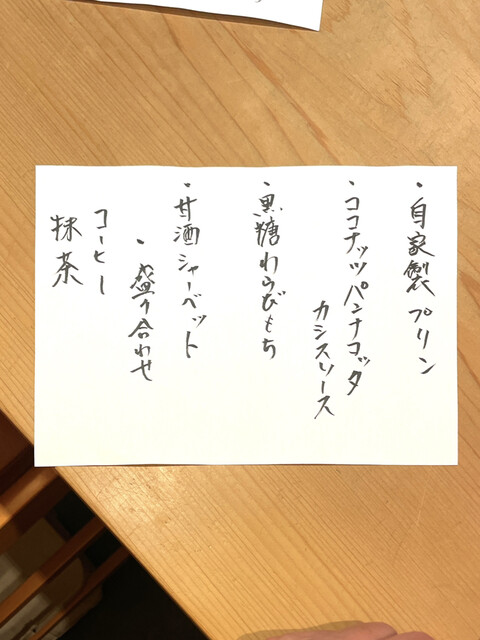 ・自家製プリン
・ココナッツパンナコッタ
カシスソース
・黒糖わらびもち
・甘酒シャーベット
・盛り合わせ
コーヒー
抹茶